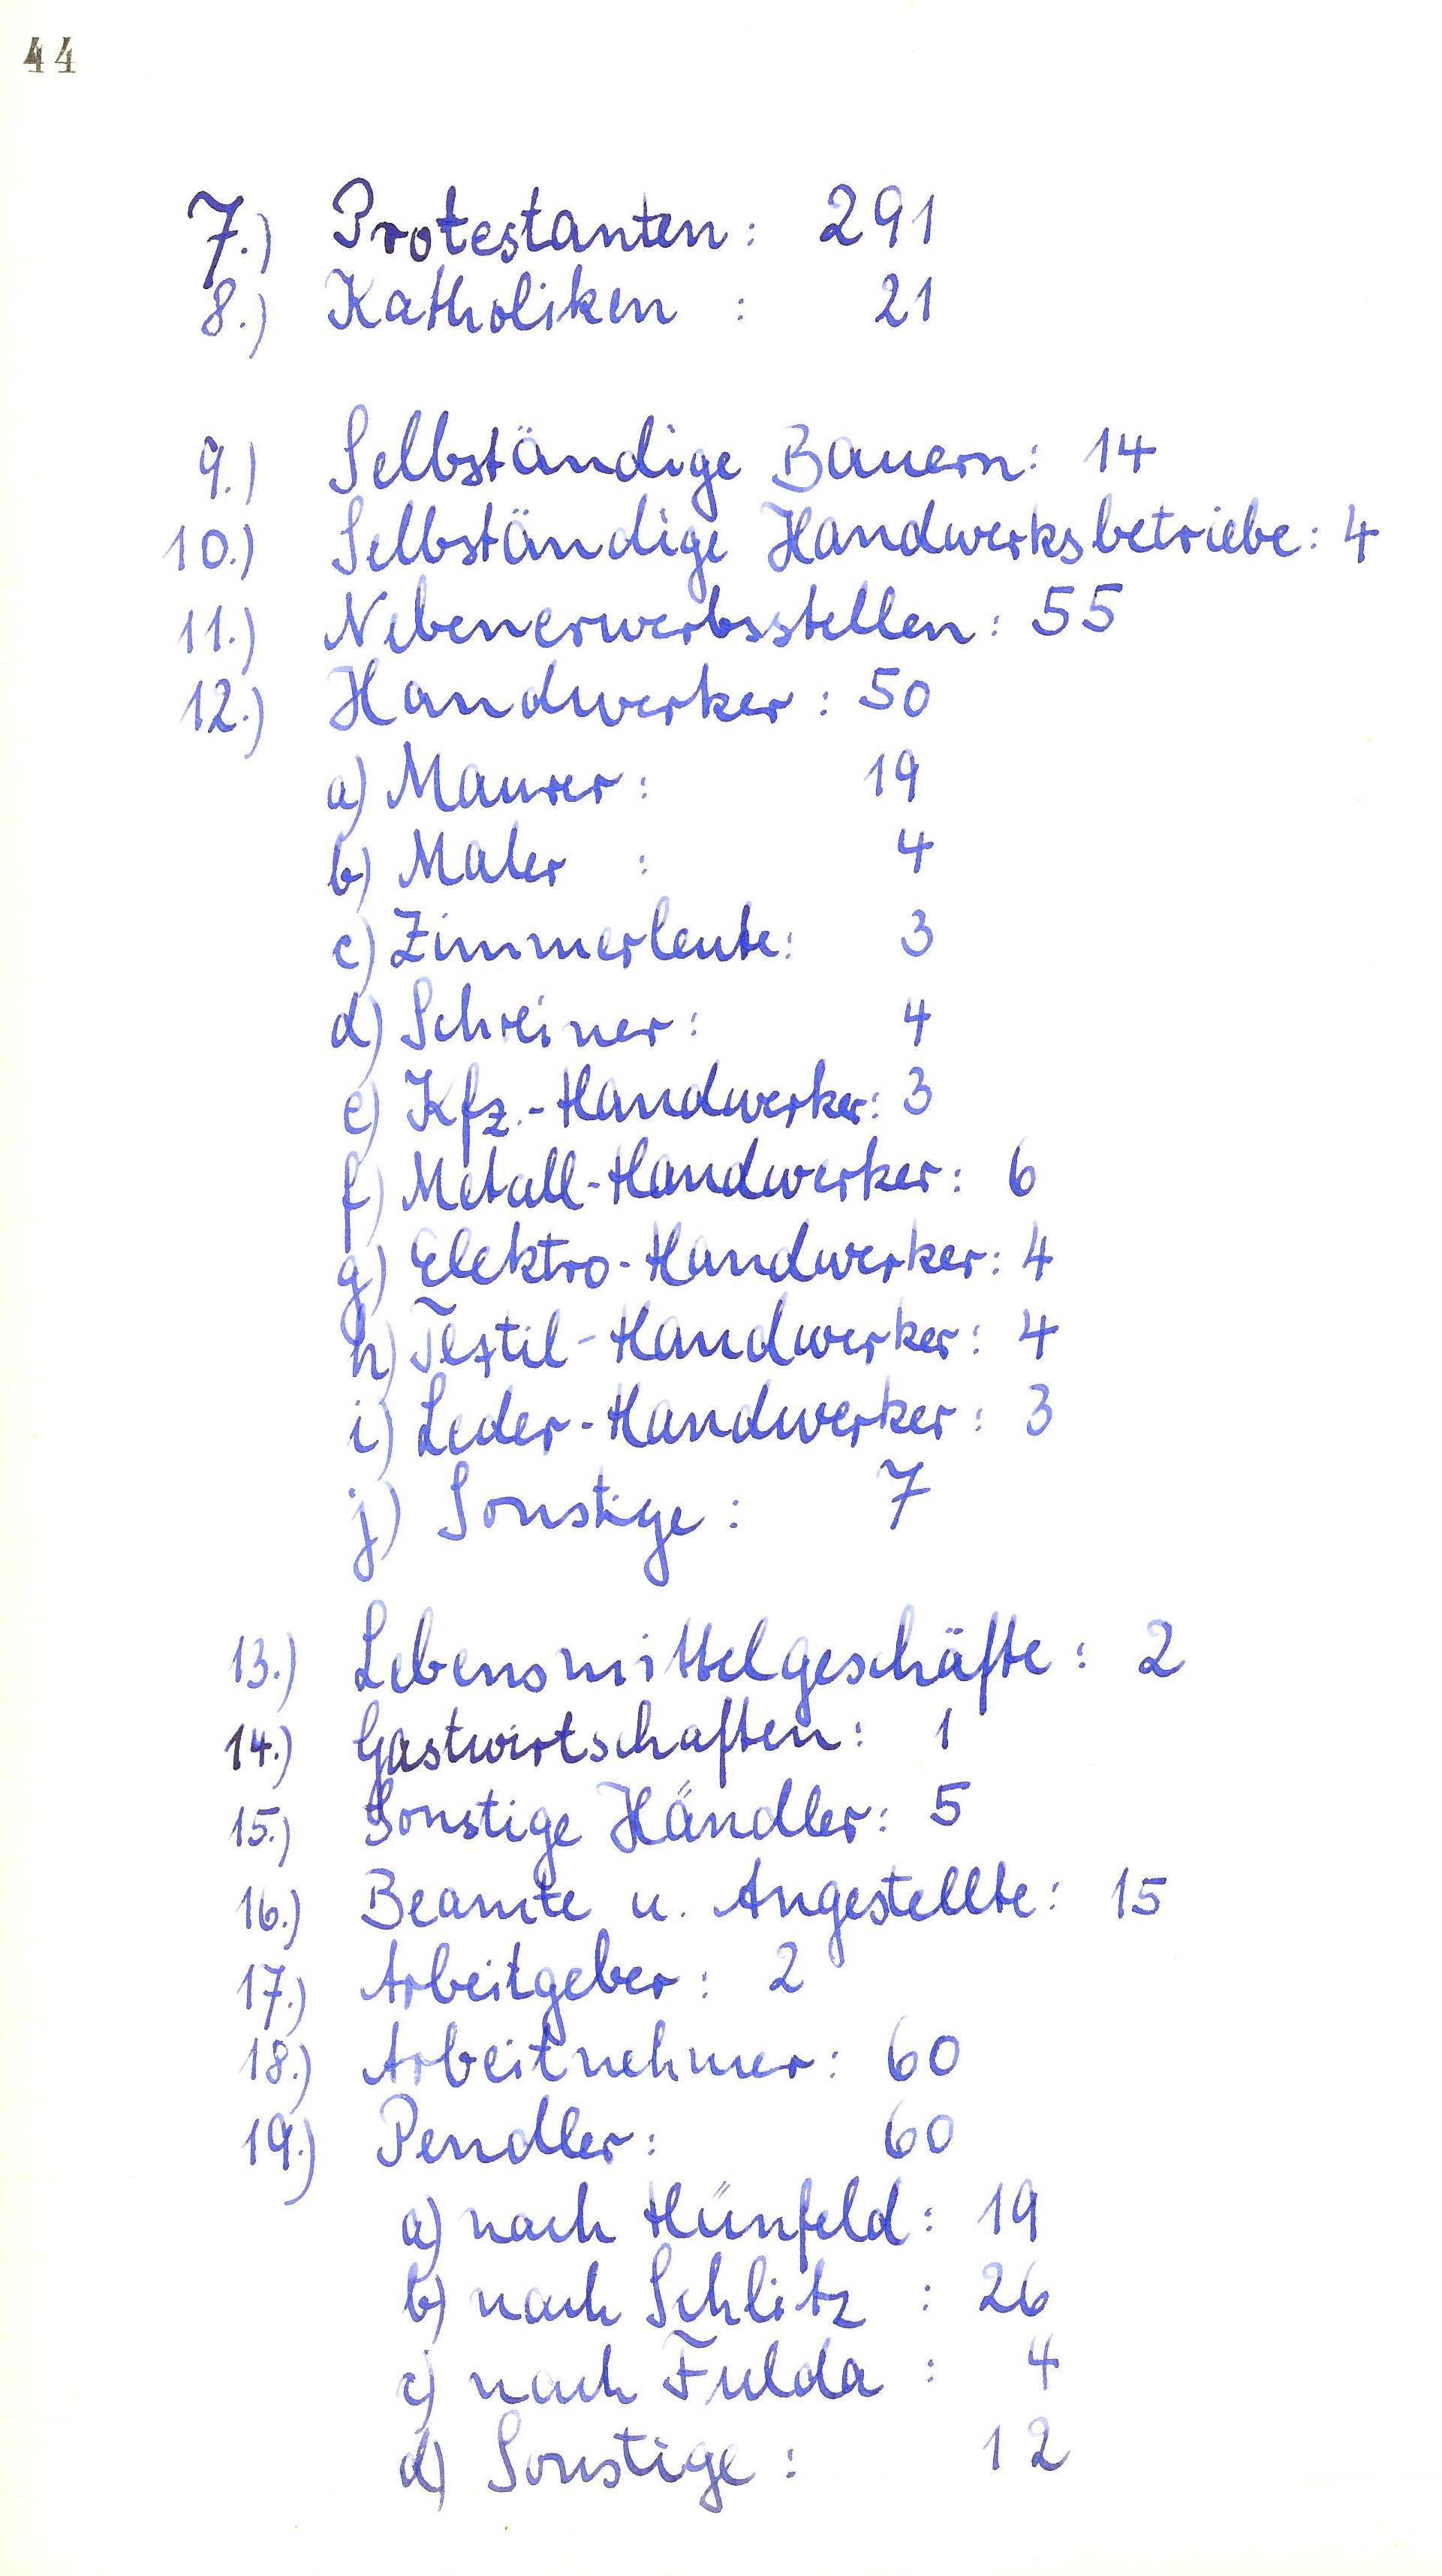 44
7.) Protestanten: 291
8.) Katholiken : 21
9.) Selbständige Bauern: 14
10.) Selbständige Handwerksbetriebe: 4
11.) Nebenerwerbsstellen: 55
12.) Handwerker: 50
a) Maurer: 19
b) Maler : 4
c) Zimmerleute: 3
d) Schreiner: 4
e) Kfz.-Handwerker: 3
f) Metall-Handwerker: 6
g) Elektro-Handwerker: 4
h) Textil-Handwerker: 4
i) Leder-Handwerker: 3
j) Sonstige: 7
13.) Lebensmittelgeschäfte: 2
14.) Gastwirtschaften: 1
15.) Sonstige Händler: 5
16.) Beamte u. Angestellte: 15
17.) Arbeitgeber: 2
18.) Arbeitnehmer: 60
19.) Pendler: 60
a) nach Hünfeld: 19
b) nach Schlitz : 26
c) nach Fulda : 4
d) Sonstige: 12